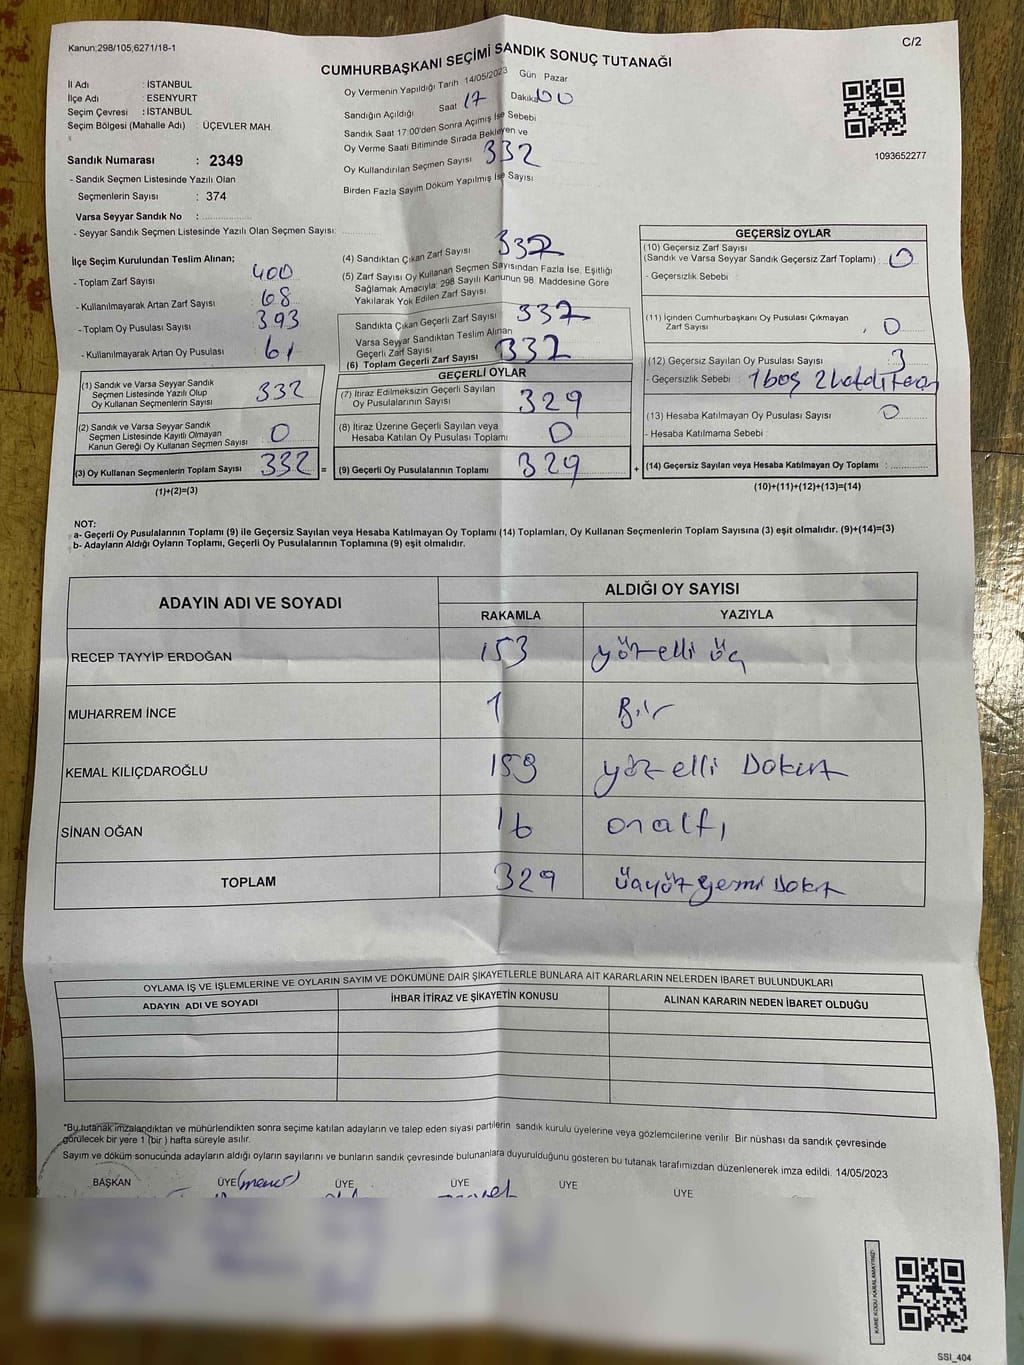 Kanun;298/105,6271/18-1
C/2
CUMHURBAŞKANI SEÇİMİ SANDIK SONUÇ TUTANAĞI
İl Adı : İSTANBUL
İlçe Adı : ESENYURT
Seçim Çevresi : İSTANBUL
Seçim Bölgesi (Mahalle Adı) : ÜÇEVLER MAH.
Sandık Numarası : 2349
- Sandık Seçmen Listesinde Yazılı Olan
Seçmenlerin Sayısı : 374
Varsa Seyyar Sandık No :
- Seyyar Sandık Seçmen Listesinde Yazılı Olan Seçmen Sayısı:
Oy Vermenin Yapıldığı Tarih 14/05/2023 Gün Pazar
Sandığın Açıldığı Saat 17 Dakika 00
Sandık Saat 17:00'den Sonra Açımış İse Sebebi
Oy Verme Saati Bitiminde Sırada Bekleyen ve
Oy Kullandırılan Seçmen Sayısı 332
Birden Fazla Sayım Döküm Yapılmış İse Sayısı
1093652277
İlçe Seçim Kurulundan Teslim Alınan;
- Toplam Zarf Sayısı 400
- Kullanılmayarak Artan Zarf Sayısı 68
- Toplam Oy Pusulası Sayısı 393
- Kullanılmayarak Artan Oy Pusulası 61
(1) Sandık ve Varsa Seyyar Sandık
Seçmen Listesinde Yazılı Olup
Oy Kullanan Seçmenlerin Sayısı 332
(2) Sandık ve Varsa Seyyar Sandık
Seçmen Listesinde Kayıtlı Olmayan
Kanun Gereği Oy Kullanan Seçmen Sayısı 0
(3) Oy Kullanan Seçmenlerin Toplam Sayısı 332 =
(1)+(2)=(3)
(4) Sandıktan Çıkan Zarf Sayısı 332
(5) Zarf Sayısı Oy Kullanan Seçmen Sayısından Fazla İse, Eşitliği
Sağlamak Amacıyla, 298 Sayılı Kanunun 98. Maddesine Göre
Yakılarak Yok Edilen Zarf Sayısı
Sandıkta Çıkan Geçerli Zarf Sayısı 332
Varsa Seyyar Sandıktan Teslim Alınan
Geçerli Zarf Sayısı
(6) Toplam Geçerli Zarf Sayısı 332
GEÇERLİ OYLAR
(7) İtiraz Edilmeksizin Geçerli Sayılan
Oy Pusulalarının Sayısı 329
(8) İtiraz Üzerine Geçerli Sayılan veya
Hesaba Katılan Oy Pusulası Toplamı 0
(9) Geçerli Oy Pusulalarının Toplamı 329 +
GEÇERSİZ OYLAR
(10) Geçersiz Zarf Sayısı
(Sandık ve Varsa Seyyar Sandık Geçersiz Zarf Toplamı) : 0
- Geçersizlik Sebebi :
(11) İçinden Cumhurbaşkanı Oy Pusulası Çıkmayan
Zarf Sayısı 0
(12) Geçersiz Sayılan Oy Pusulası Sayısı : 3
- Geçersizlik Sebebi : 1 boş 2
(13) Hesaba Katılmayan Oy Pusulası Sayısı : 0
- Hesaba Katılmama Sebebi :
(14) Geçersiz Sayılan veya Hesaba Katılmayan Oy Toplamı :
(10)+(11)+(12)+(13)=(14)
NOT:
a- Geçerli Oy Pusulalarının Toplamı (9) ile Geçersiz Sayılan veya Hesaba Katılmayan Oy Toplamı (14) Toplamları, Oy Kullanan Seçmenlerin Toplam Sayısına (3) eşit olmalıdır. (9)+(14)=(3)
b- Adayların Aldığı Oyların Toplamı, Geçerli Oy Pusulalarının Toplamına (9) eşit olmalıdır.
ADAYIN ADI VE SOYADI
ALDIĞI OY SAYISI
RAKAMLA YAZIYLA
RECEP TAYYİP ERDOĞAN 153 yüzelli üç
MUHARREM İNCE 1 Bir
KEMAL KILIÇDAROĞLU 159 yüz elli Dokuz
SİNAN OĞAN 16 onaltı
TOPLAM 329 üçyüz yermi Dokuz
OYLAMA İŞ VE İŞLEMLERİNE VE OYLARIN SAYIM VE DÖKÜMÜNE DAİR ŞİKAYETLERLE BUNLARA AİT KARARLARIN NELERDEN İBARET BULUNDUKLARI
ADAYIN ADI VE SOYADI İHBAR İTİRAZ VE ŞİKAYETİN KONUSU ALINAN KARARIN NEDEN İBARET OLDUĞU
"Bu tutanak imzalandıktan ve mühürlendikten sonra seçime katılan adayların ve talep eden siyasi partilerin sandık kurulu üyelerine veya gözlemcilerine verilir. Bir nüshası da sandık çevresinde
görülecek bir yere 1 (bir) hafta süreyle asılır.
Sayım ve döküm sonucunda adayların aldığı oyların sayılarını ve bunların sandık çevresinde bulunanlara duyurulduğunu gösteren bu tutanak tarafımızdan düzenlenerek imza edildi. 14/05/2023
BAŞKAN ÜYE (memur) ÜYE ÜYE ÜYE ÜYE
KARE KODU KARALAMAYINIZ!
SSI_404